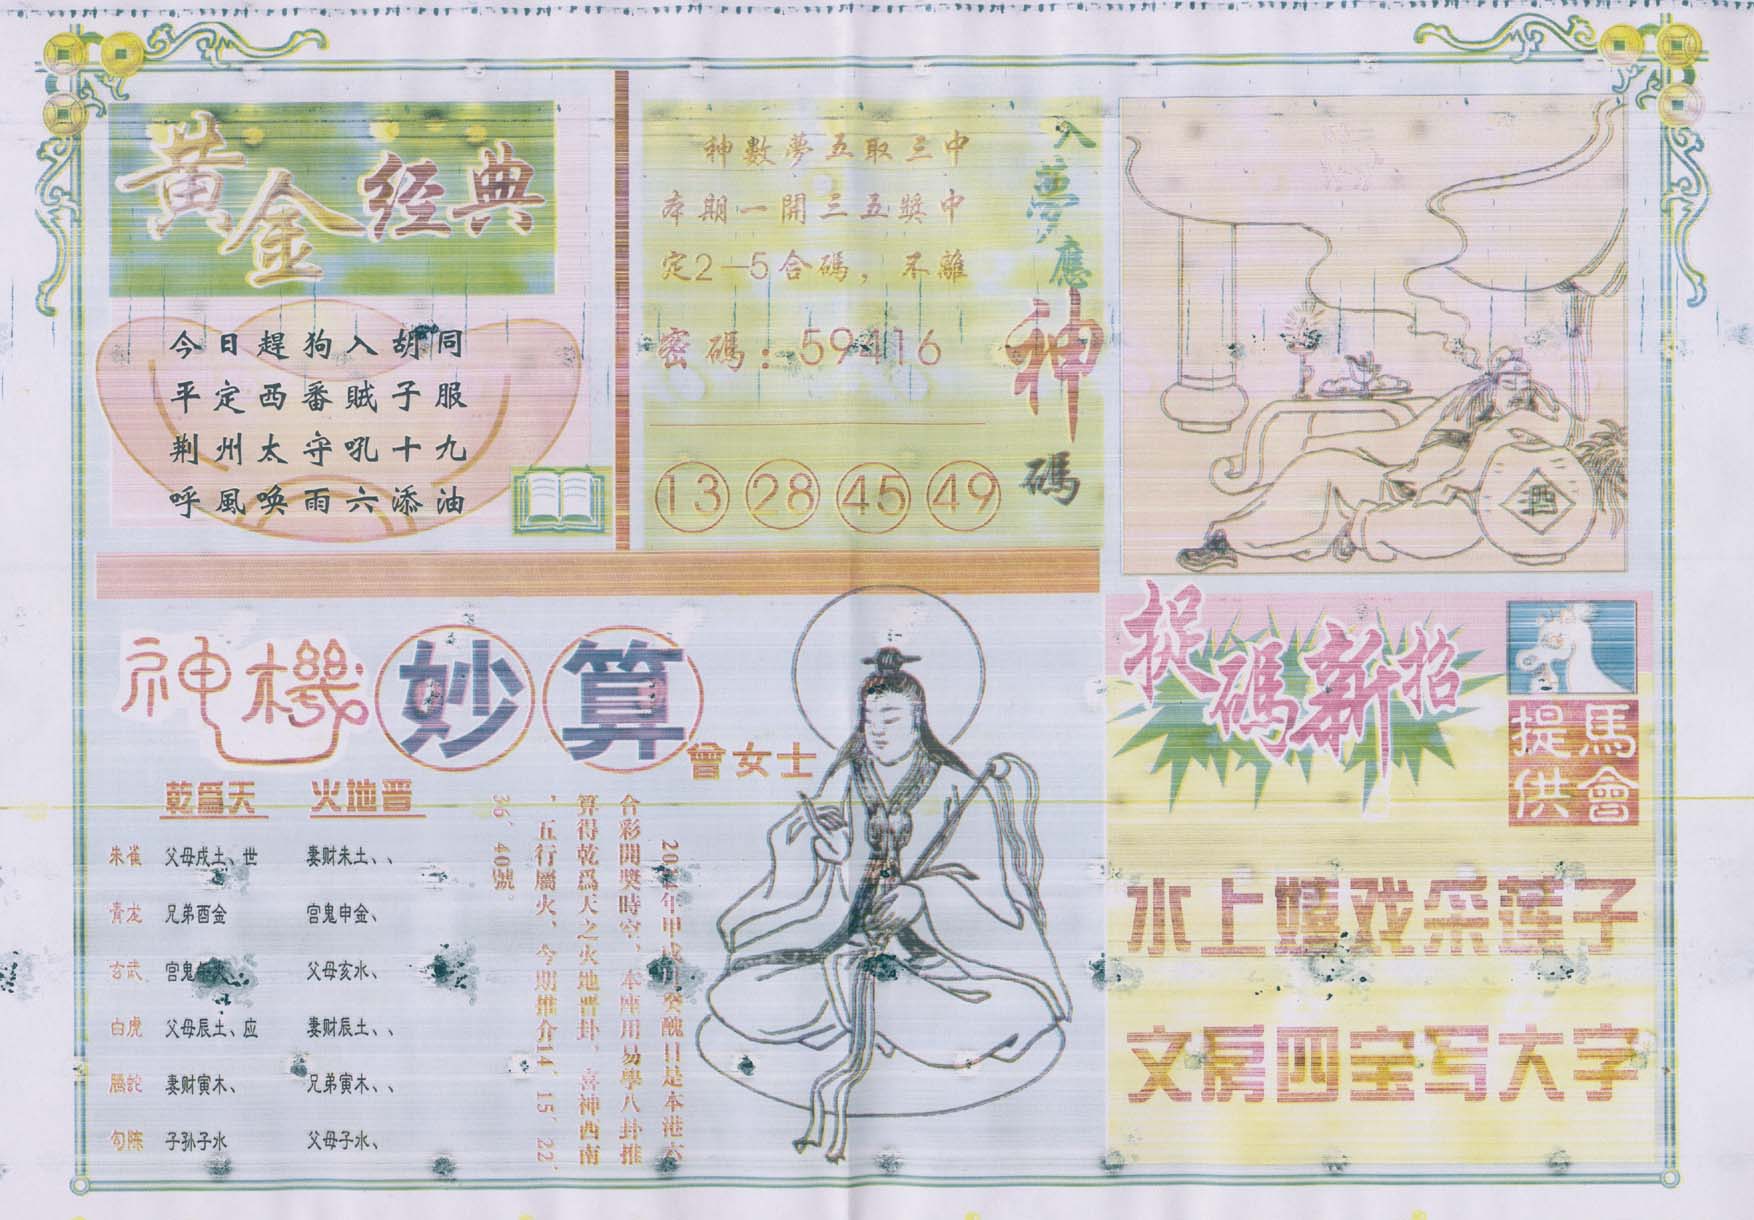 黄金经典
今日趕狗入胡同
平定西番賊子服
荆州太守吼十九
呼風唤雨六添油
入夢應神碼
神數夢五取三中
本期一開三五獎中
定2—5合碼，不離
密碼：59416
13 28 45 49
酒
神機妙算
曾女士
乾爲天 火地晋
朱雀 父母戌土、世 妻财未土、、
青龙 兄弟酉金 宫鬼申金、
玄武 宫鬼 父母亥水、
白虎 父母辰土、应 妻财辰土、、
腾蛇 妻财寅木、 兄弟寅木、、
勾陈 子孙子水 父母子水、
年甲戌月癸醜日是本港六
合彩開獎時空、本座用易學八卦推
算得乾爲天之火地晋卦、喜神西南
，五行屬火、今期推介14、15、22、
36、40號。
捉碼新招
馬會提供
水上嬉戏采莲子
文房四宝写大字